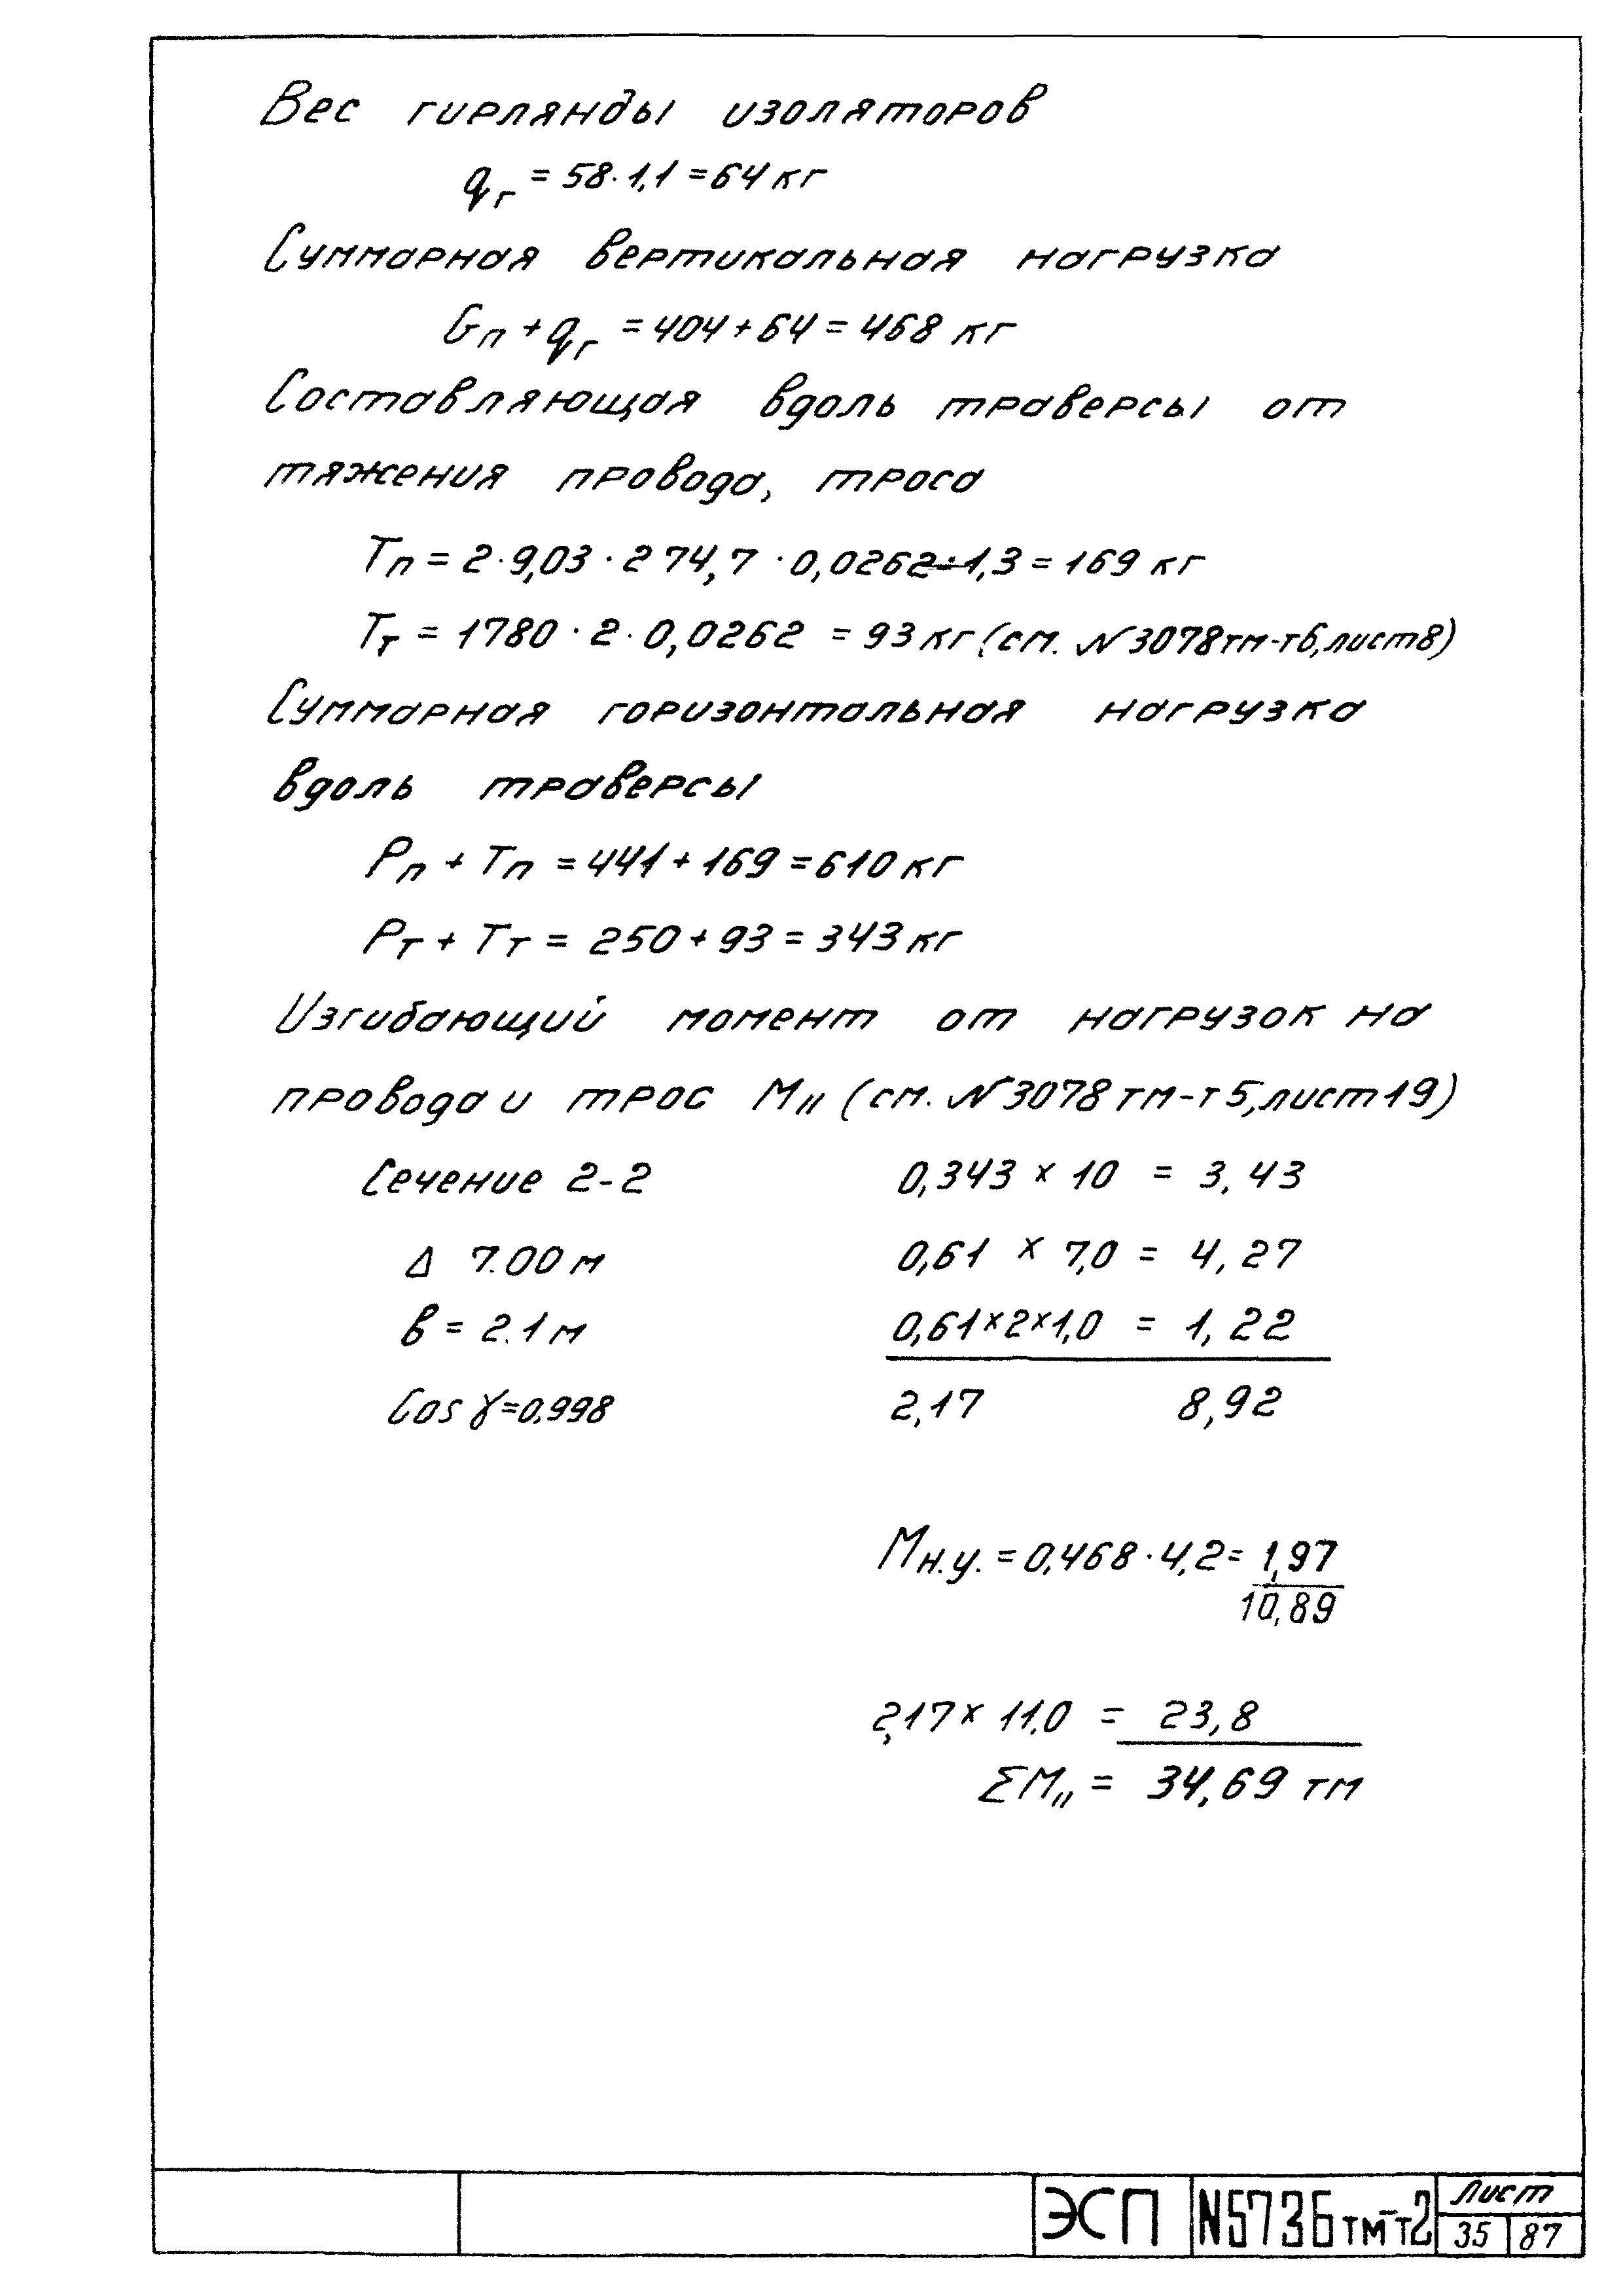 Вес гирлянды изоляторов
qг = 58·1,1 = 64 кг
Суммарная вертикальная нагрузка
Gп + qг = 404 + 64 = 468 кг
Составляющая вдоль траверсы от
тяжения провода, троса
Тп = 2·9,03·274,7·0,0262÷1,3 = 169 кг
Тт = 1780·2·0,0262 = 93 кг (см. №3078тм-т6, лист8)
Суммарная горизонтальная нагрузка
вдоль траверсы
Рп + Тп = 441 + 169 = 610 кг
Рт + Тт = 250 + 93 = 343 кг
Изгибающий момент от нагрузок на
провода и трос М" (см. №3078тм-т5, лист19)
Сечение 2-2 0,343 × 10 = 3,43
Δ 7.00 м 0,61 × 7,0 = 4,27
в = 2.1 м 0,61×2×1,0 = 1,22
Cos γ=0,998 2,17 8,92
Мн.у. = 0,468·4,2 = 1,97
10,89
2,17 × 11,0 = 23,8
ΣМ" = 34,69 тм
ЭСП N5736тм-т2 Лист
35 87